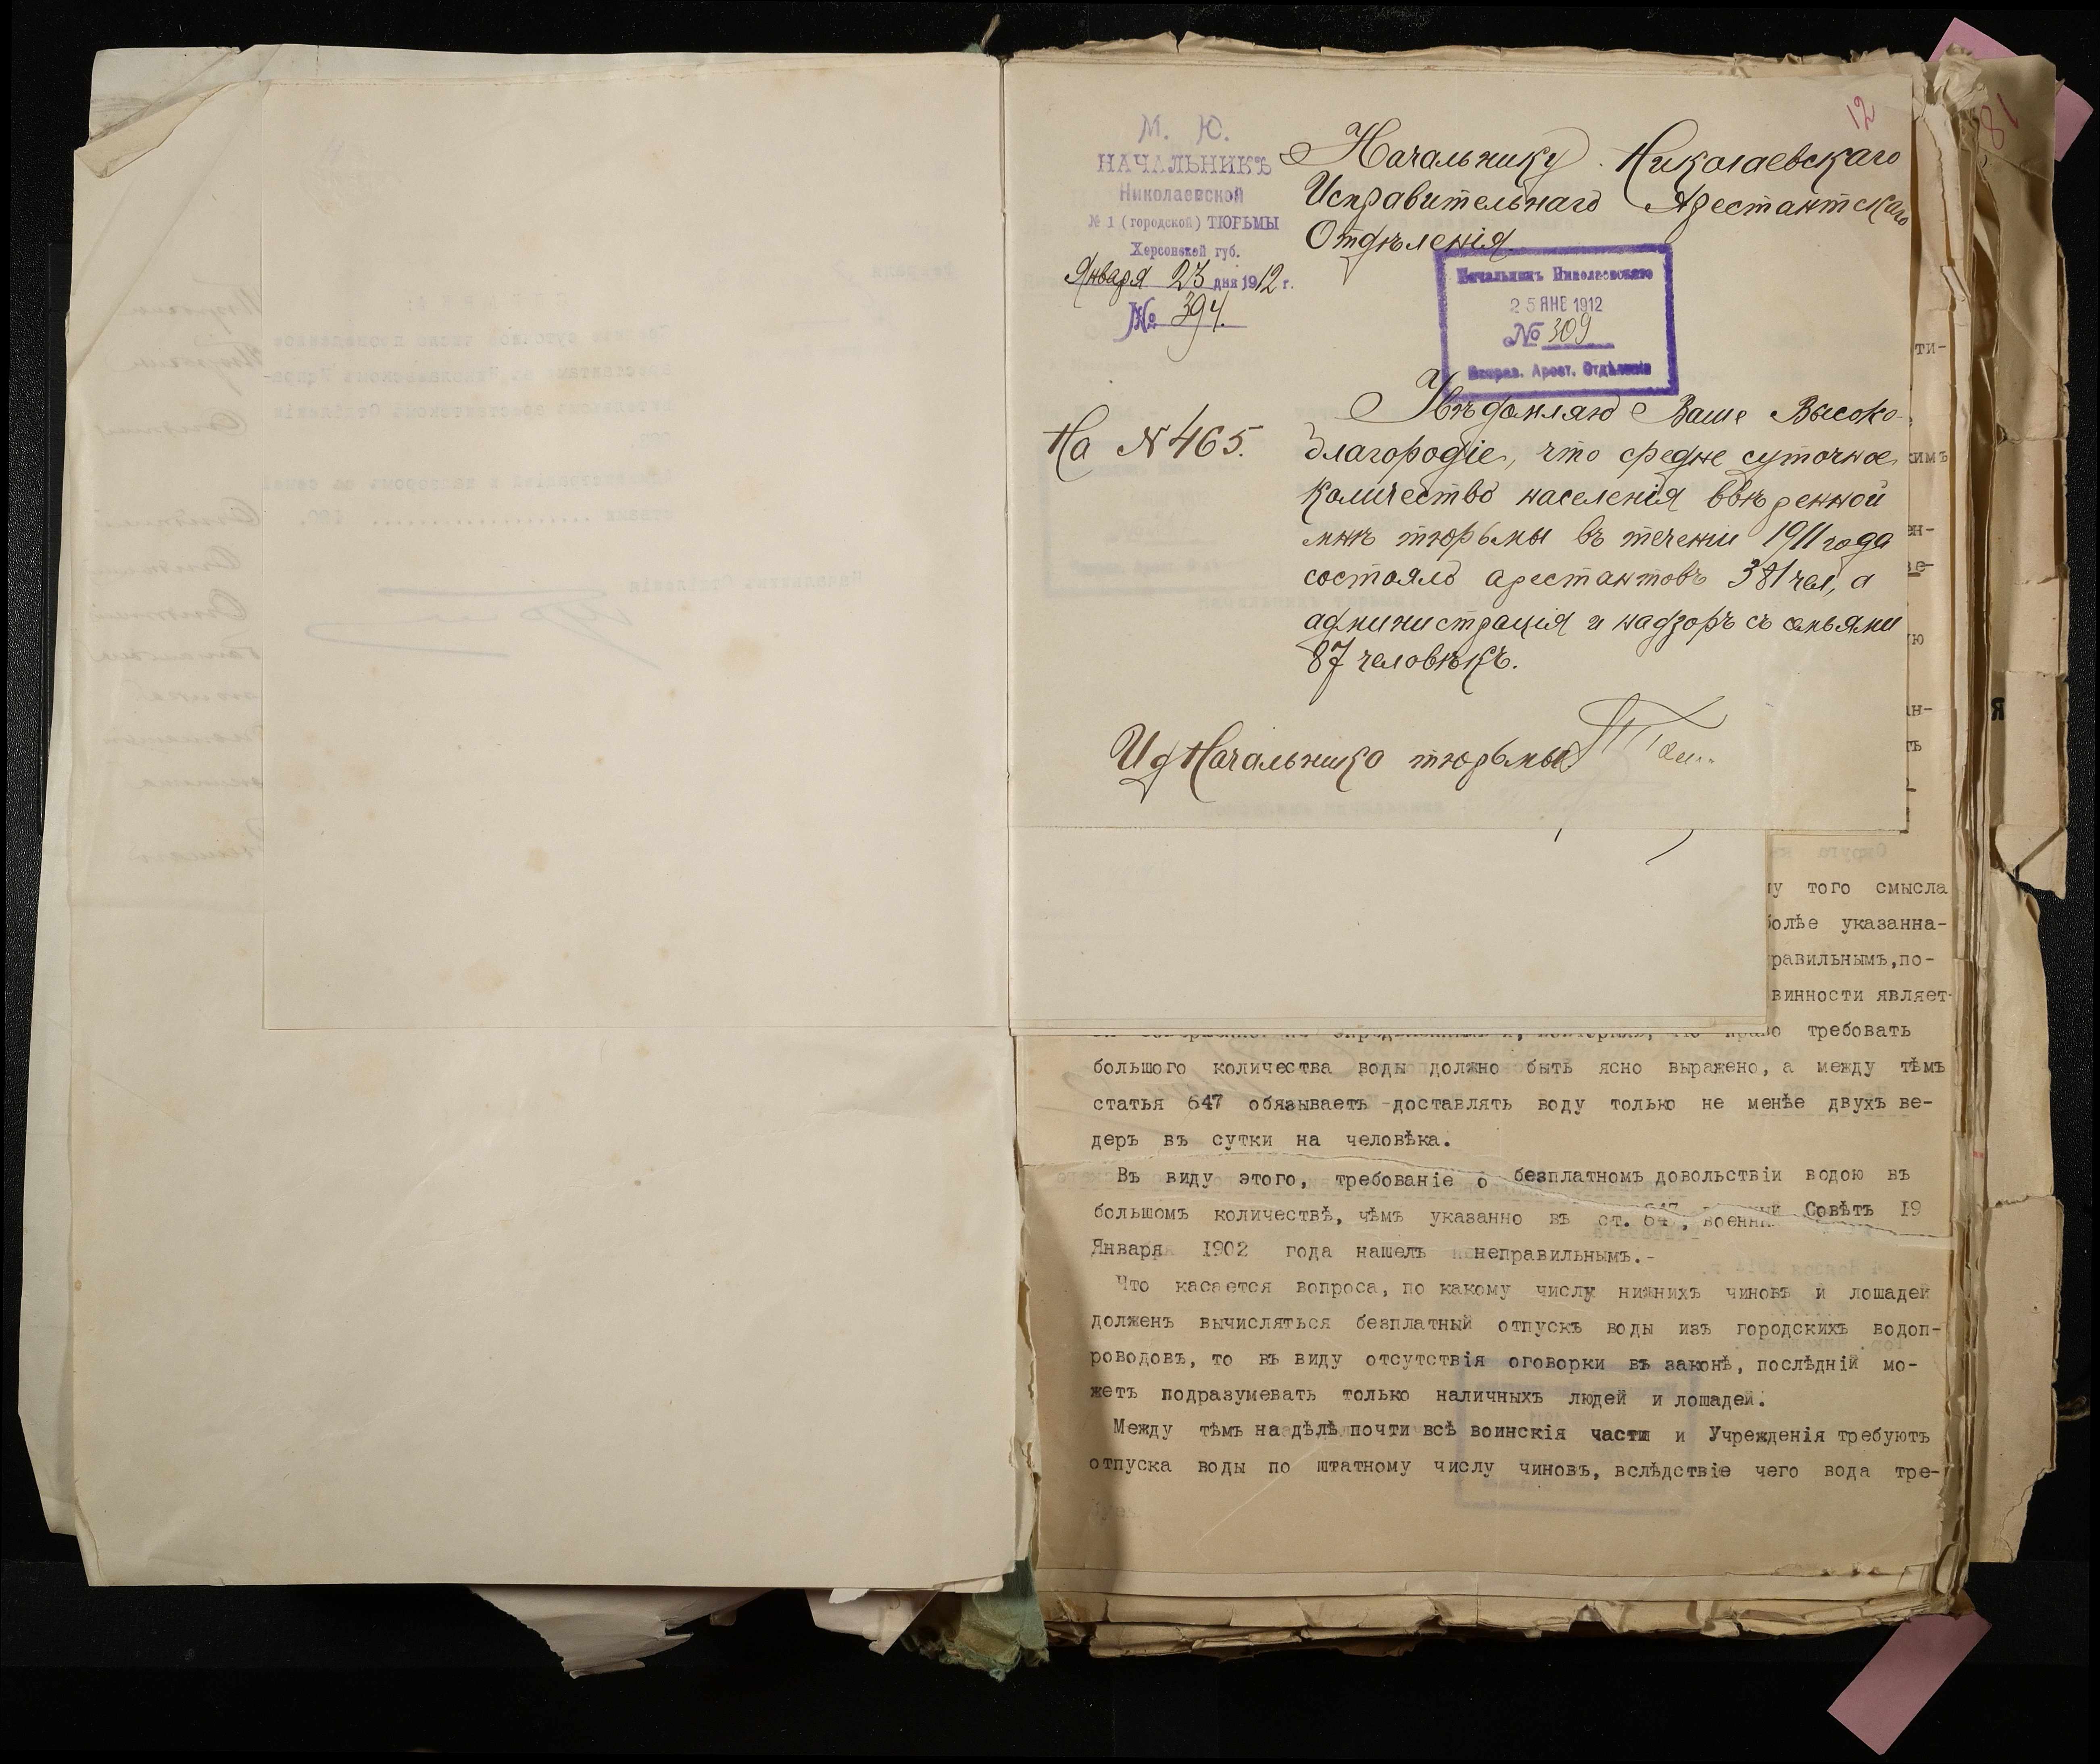 12
81
М. Ю.
НАЧАЛЬНИКЪ
Николаевской
№ 1 (городской) ТЮРЬМЫ
Херсонской губ.
Января 23 дня 1912 г.
№ 394.
Начальнику Николаевскаго
Исправительнаго Арестантскаго
Отдѣленія.
Начальникъ Николаевскаго
25 ЯНВ 1912
№ 309
Исправ. Арест. Отдѣленія
На N 465.
Увѣдомляю Ваше Высоко-
благородіе, что средне суточное
количество населенія ввѣренной
мнѣ тюрьмы въ теченіи 1911 года
состояло арестантовъ 381 чел, а
администрація и надзоръ съ семьями
87 человѣкъ.
И д Начальника тюрьмы
ти-
кимъ
ен-
ю
ан-
Я
у того смысла
болѣе указанна-
равильнымъ, по-
винности являет-
требовать
большого количества воды должно быть ясно выражено, а между тѣмъ
статья 647 обязываетъ доставлять воду только не менѣе двухъ ве-
деръ въ сутки на человѣка.
Въ виду этого, требованіе о безплатномъ довольствіи водою въ
большомъ количествѣ, чѣмъ указанно въ ст. 647, Военный Совѣтъ 19
Января 1902 года нашелъ неправильнымъ.-
Что касается вопроса, по какому числу нижнихъ чиновъ и лошадей
долженъ вычисляться безплатный отпускъ воды изъ городскихъ водоп-
роводовъ, то въ виду отсутствія оговорки въ законѣ, послѣдній мо-
жетъ подразумевать только наличныхъ людей и лошадей.
Между тѣмъ на дѣлѣ почти всѣ воинскія части и Учрежденія требуютъ
отпуска воды по штатному числу чиновъ, вслѣдствіе чего вода тре-